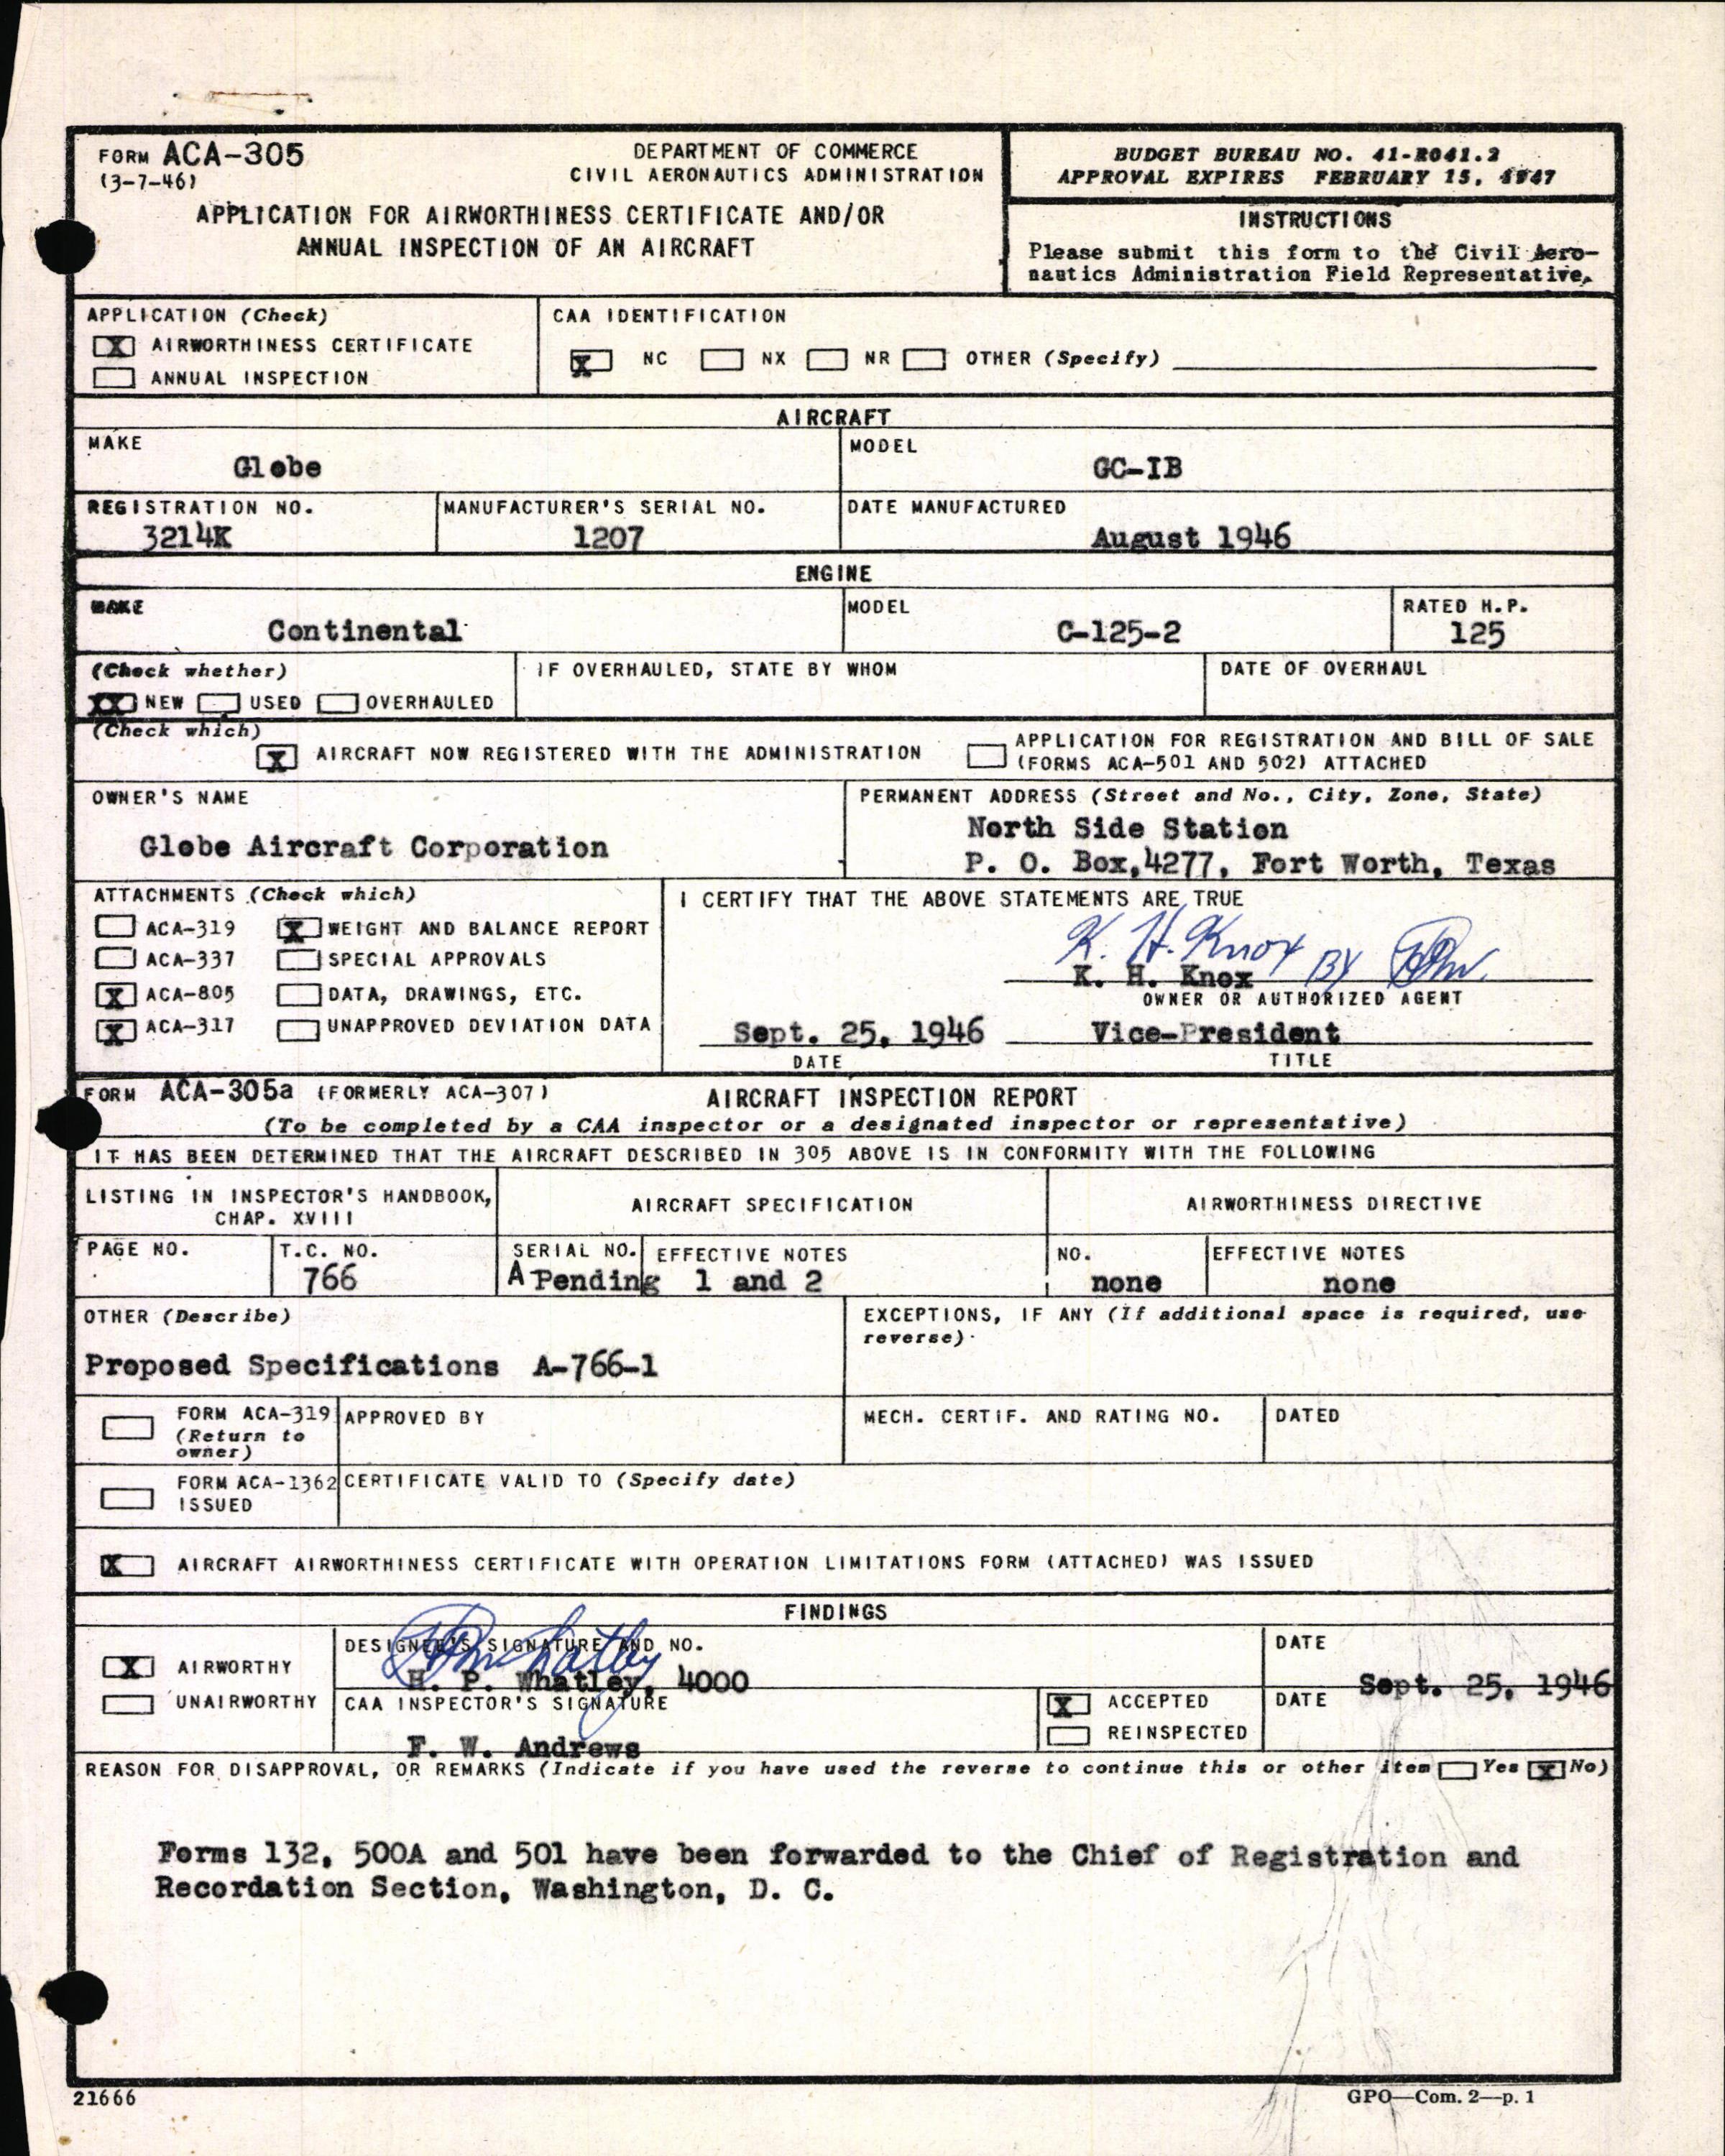 FORM ACA-305
(3-7-46)
DEPARTMENT OF COMMERCE
CIVIL AERONAUTICS ADMINISTRATION
APPLICATION FOR AIRWORTHINESS CERTIFICATE AND/OR
ANNUAL INSPECTION OF AN AIRCRAFT
BUDGET BUREAU NO. 41-R041.2
APPROVAL EXPIRES FEBRUARY 15, 1947
INSTRUCTIONS
Please submit this form to the Civil Aero-
nautics Administration Field Representative.
APPLICATION (Check)
X AIRWORTHINESS CERTIFICATE
ANNUAL INSPECTION
CAA IDENTIFICATION
X NC NX NR OTHER (Specify)
AIRCRAFT
MAKE
Globe
MODEL
GC-IB
REGISTRATION NO.
3214K
MANUFACTURER'S SERIAL NO.
1207
DATE MANUFACTURED
August 1946
ENGINE
MAKE
Continental
MODEL
C-125-2
RATED H.P.
125
(Check whether)
XX NEW USED OVERHAULED
IF OVERHAULED, STATE BY WHOM
DATE OF OVERHAUL
(Check which)
X AIRCRAFT NOW REGISTERED WITH THE ADMINISTRATION
APPLICATION FOR REGISTRATION AND BILL OF SALE
(FORMS ACA-501 AND 502) ATTACHED
OWNER'S NAME
Globe Aircraft Corporation
PERMANENT ADDRESS (Street and No., City, Zone, State)
North Side Station
P. O. Box,4277, Fort Worth, Texas
ATTACHMENTS (Check which)
ACA-319 X WEIGHT AND BALANCE REPORT
ACA-337 SPECIAL APPROVALS
X ACA-805 DATA, DRAWINGS, ETC.
X ACA-317 UNAPPROVED DEVIATION DATA
I CERTIFY THAT THE ABOVE STATEMENTS ARE TRUE
K. H. Knox BY
K. H. Knox
OWNER OR AUTHORIZED AGENT
Sept. 25, 1946 Vice-President
DATE TITLE
FORM ACA-305a (FORMERLY ACA-307) AIRCRAFT INSPECTION REPORT
(To be completed by a CAA inspector or a designated inspector or representative)
IT HAS BEEN DETERMINED THAT THE AIRCRAFT DESCRIBED IN 305 ABOVE IS IN CONFORMITY WITH THE FOLLOWING
LISTING IN INSPECTOR'S HANDBOOK,
CHAP. XVIII
AIRCRAFT SPECIFICATION
AIRWORTHINESS DIRECTIVE
PAGE NO.
T.C. NO.
766
SERIAL NO.
A Pending
EFFECTIVE NOTES
1 and 2
NO.
none
EFFECTIVE NOTES
none
OTHER (Describe)
Proposed Specifications A-766-1
EXCEPTIONS, IF ANY (If additional space is required, use
reverse).
FORM ACA-319
(Return to
owner)
APPROVED BY
MECH. CERTIF. AND RATING NO.
DATED
FORM ACA-1362
ISSUED
CERTIFICATE VALID TO (Specify date)
X AIRCRAFT AIRWORTHINESS CERTIFICATE WITH OPERATION LIMITATIONS FORM (ATTACHED) WAS ISSUED
FINDINGS
X AIRWORTHY
UNAIRWORTHY
DESIGNEE'S SIGNATURE AND NO.
H. P. Whatley, 4000
DATE
Sept. 25, 1946
CAA INSPECTOR'S SIGNATURE
F. W. Andrews
X ACCEPTED
REINSPECTED
DATE
REASON FOR DISAPPROVAL, OR REMARKS (Indicate if you have used the reverse to continue this or other item Yes X No)
Forms 132, 500A and 501 have been forwarded to the Chief of Registration and
Recordation Section, Washington, D. C.
21666
GPO—Com. 2—p. 1